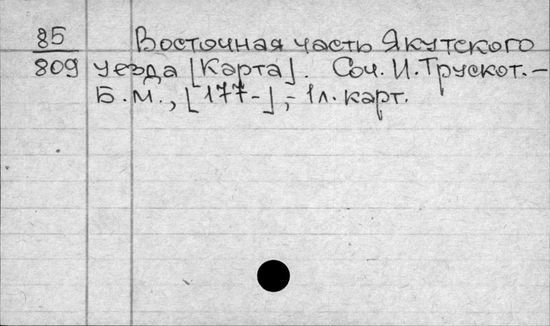 85 Восточная часть Якутского
809 уезда [Карта]. Соч. И. Трускот. -
Б. М., [177-]; 1л. карт.